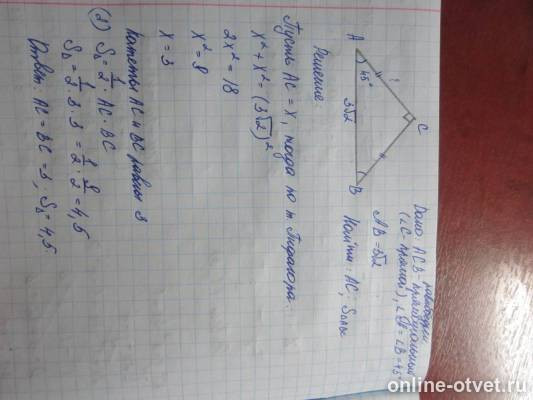 равнобедр.
Дано: ACB - прямоугольный
(∠C - прямой), ∠A = ∠B = 45°
AB = 3√2
Найти: AC; S
A
45°
C
3√2
B
Решение:
Пусть AC = x, тогда по т. Пифагора
x² + x² = (3√2)²
2x² = 18
x² = 9
x = 3
Катеты AC и BC равны 3
(2) S_Δ = 1/2 · AC · BC
S_Δ = 1/2 · 3 · 3 = 1/2 · 9/2 = 4,5
Ответ: AC = BC = 3; S_Δ = 4,5
online-otvet.ru